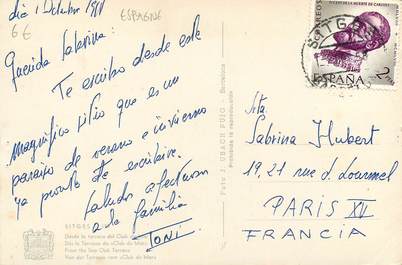 dia 1 Octubre
6€
ESPAGNE
Querida Sabrina:
Te escribo desde este
magnifico sitio que es un
paraiso de verano e invierno
ya pronto te escribire.
Saludos afectuosos
a la familia
Toni
SITGES
Desde la terraza del Club
Dès la Terrasse du «Club de Mar»
From the Sea Club Terrace
Von der Terrasse vom «Club de Mar»
Foto J. UBACH PUIG - Barcelona
Prohibida la reproducción
CORREOS
CENT. DE LA MUERTE DE CARLOS I
ESPAÑA
2
PESETAS
SITGES
Sta.
Sabrina Hubert
19, 21 rue d. Lourmel
PARIS XV
FRANCIA